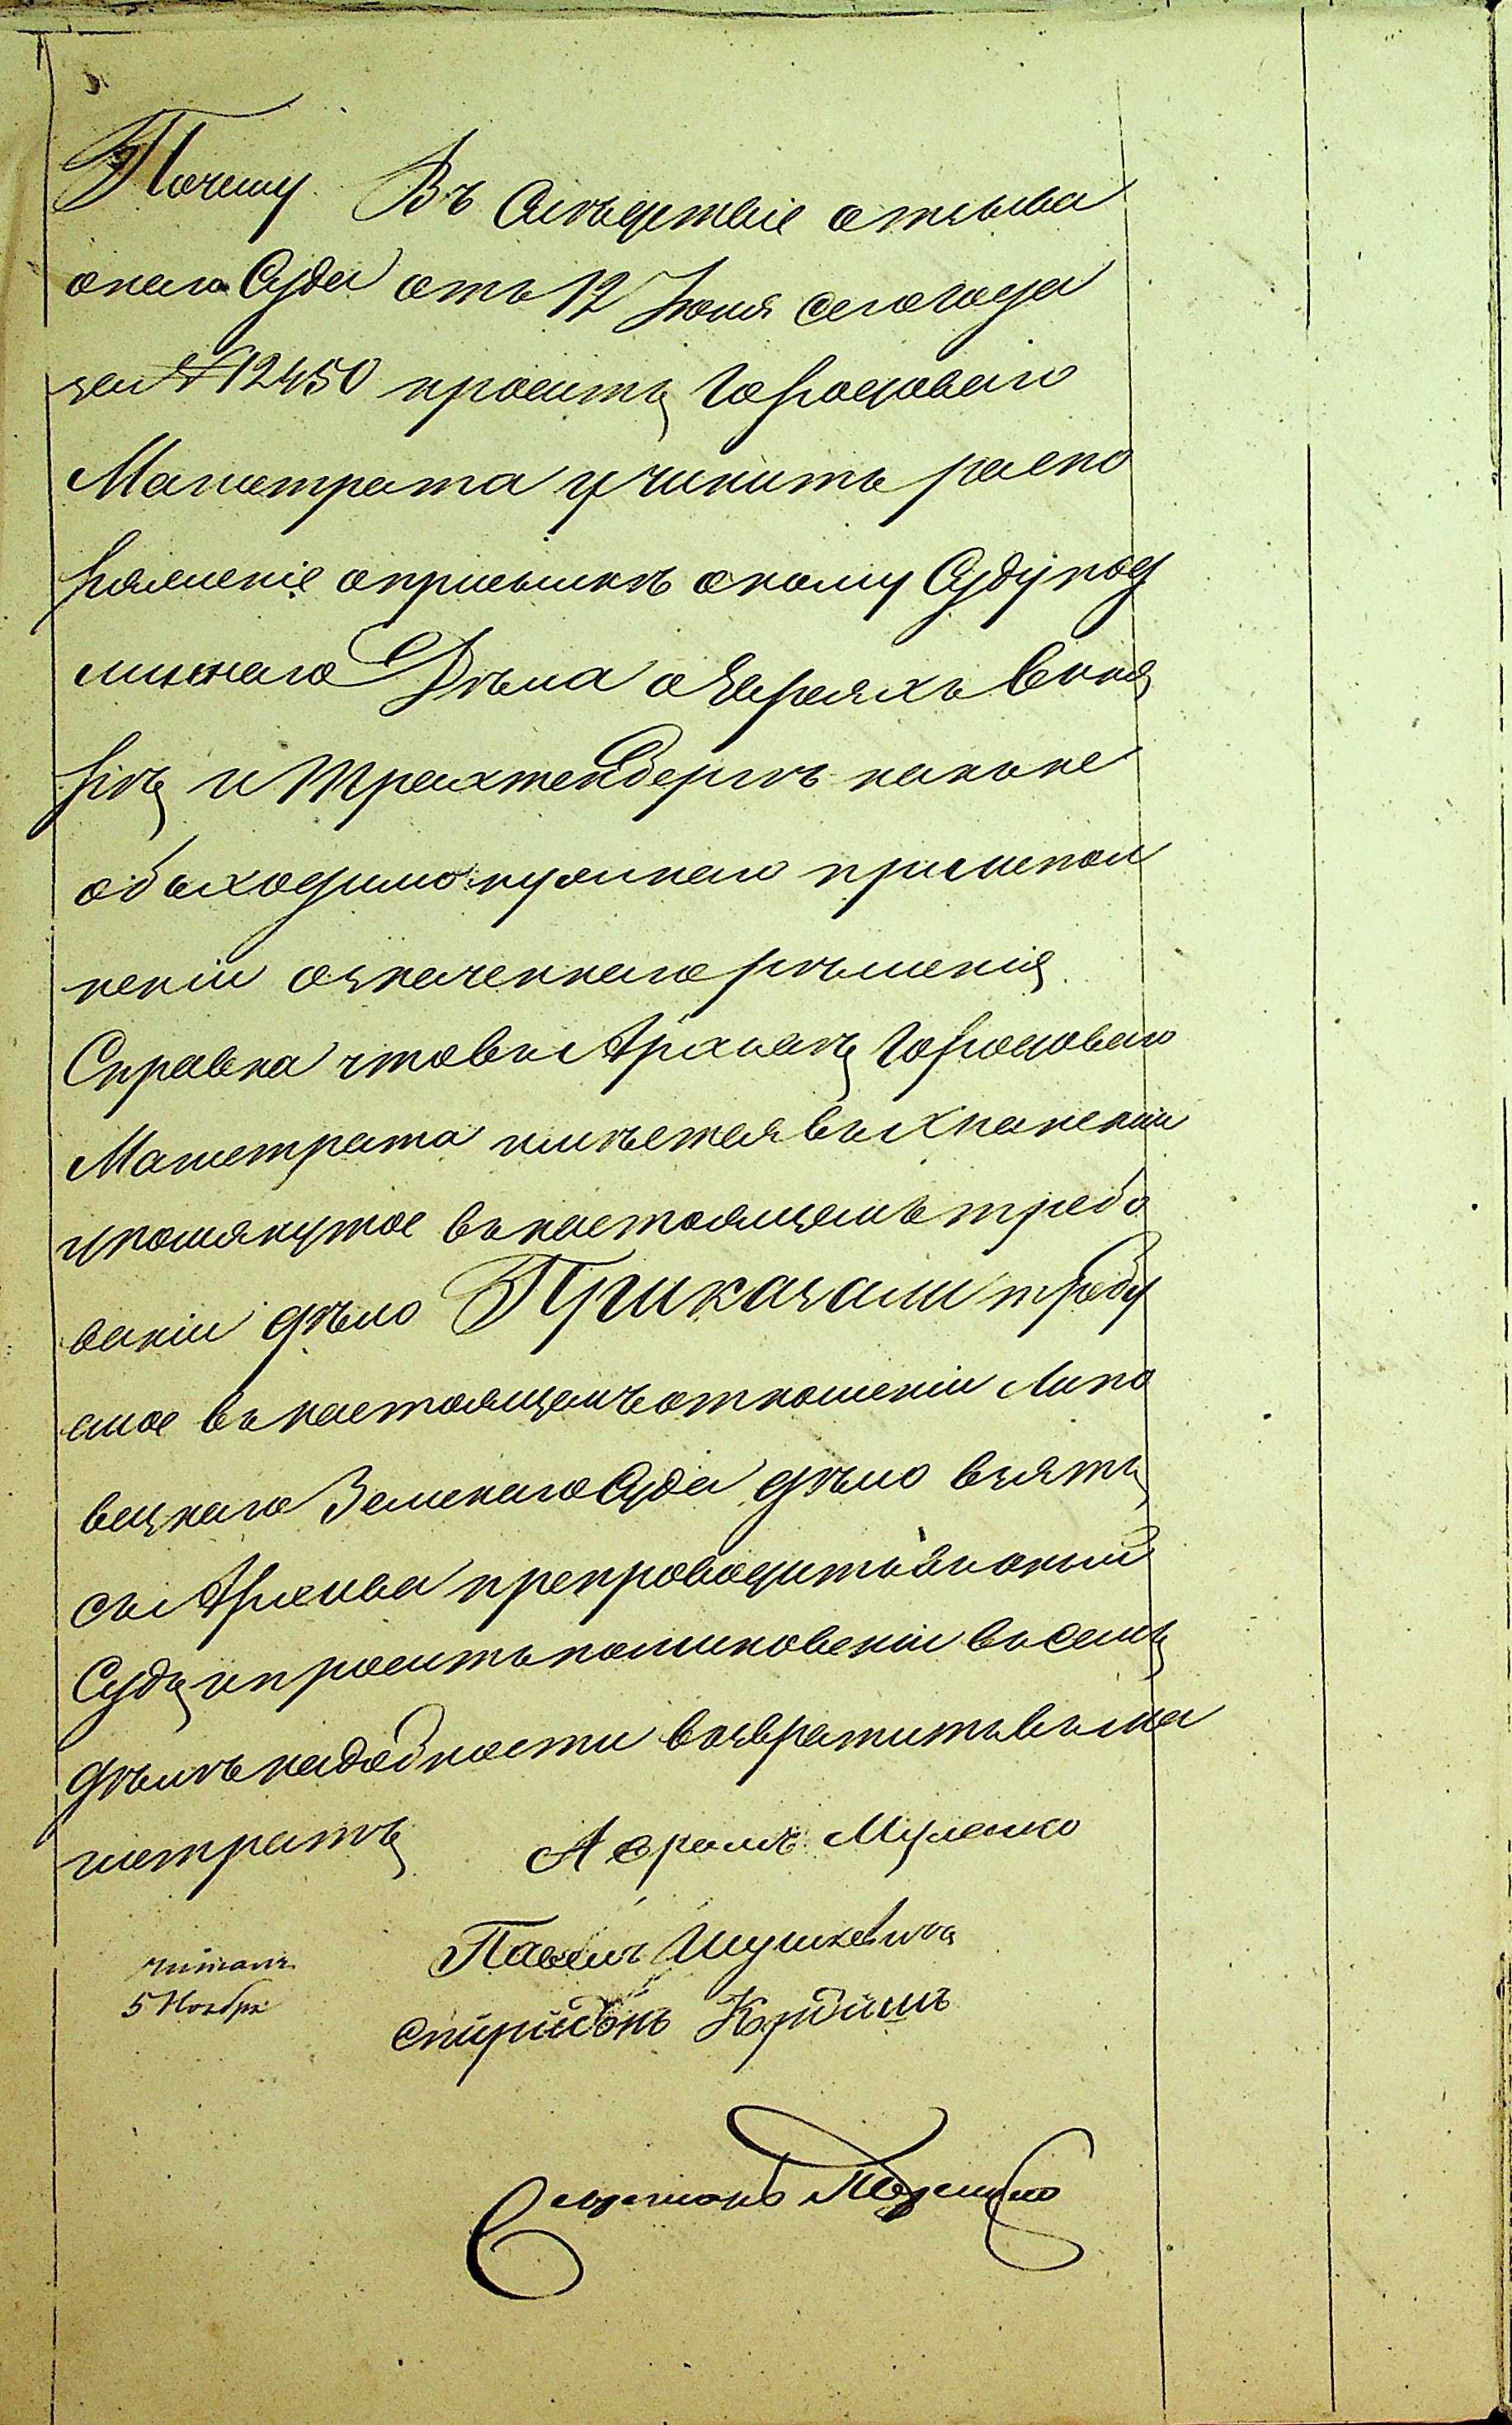 Почему Въ Слѣдствіе отзыва
онаго Суда отъ 12 Іюня сего года
за № 12450 проситъ Городоваго
Магистрата учинить распо
ряженіе о присылкѣ оному Суду под
линнаго Дѣла о Евреяхъ
и Трахтенбергѣ какъ не
обыходимо нужнаго при испол
неніи означеннаго рѣшенія
Справка что въ Архивѣ Городоваго
Магистрата имѣется въ храненіи
упомянутое въ настоящемъ требо
ваніи дѣло Приказали требу
емое въ настоящемъ отношеніи Липо
вецкаго Земскаго Суда дѣло взять
съ Архива препроводить въ оный
Судъ и проситъ по миновеніи въ семъ
дѣлѣ надобности возвратить въ ма
гистратъ Аврамъ
Павелъ Шушкевичъ
читалъ
5 Ноября
Спиридонъ